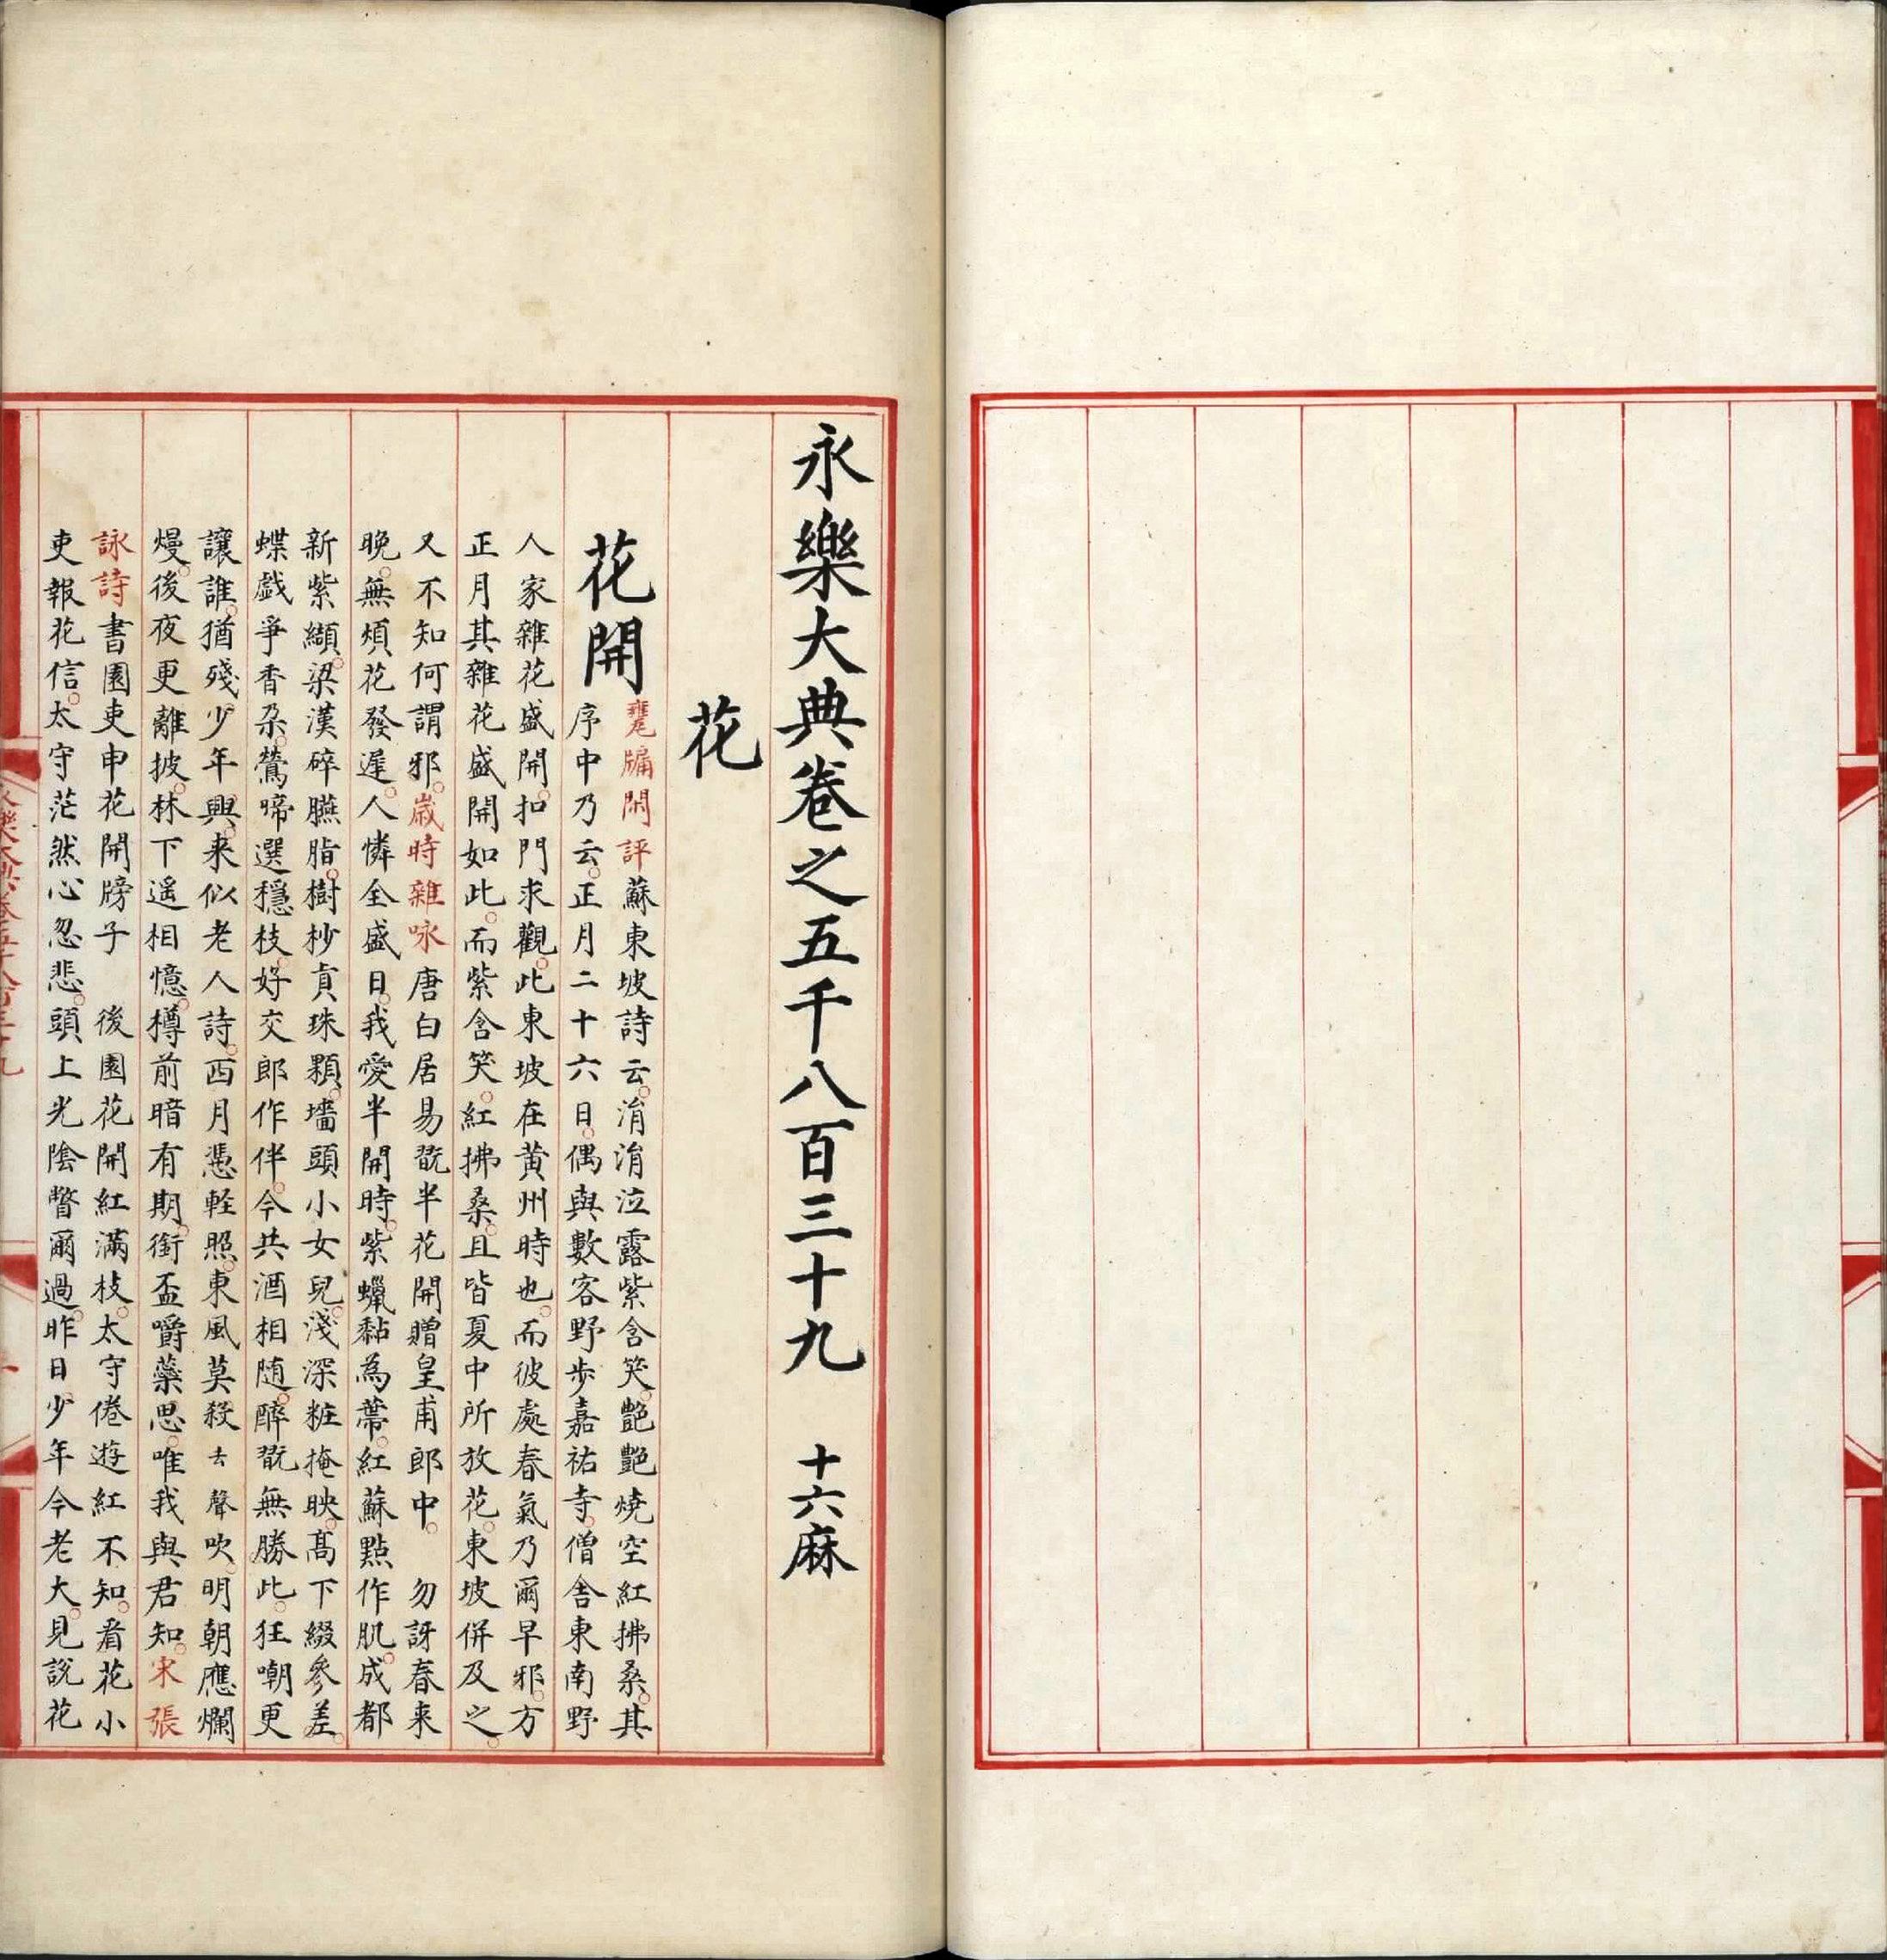 永樂大典卷之五千八百三十九　十六麻
花
花開
甕牖閑評蘇東坡詩云涓涓泣露紫含笑艶艶燒空紅拂桑其
序中乃云正月二十六日偶與數客野步嘉祐寺僧舍東南野
人家雜花盛開扣門求觀此東坡在黄州時也而彼處春氣乃爾早邪方
正月其雜花盛開如此而紫含笑紅拂桑且皆夏中所放花東坡併及之
又不知何謂邪歲時雜咏唐白居易翫半花開贈皇甫郎中　勿訝春来
晚無煩花發遲人憐全盛日我愛半開時紫蠟黏為蔕紅蘇點作肌成都
新紫纈梁漢碎臙脂樹杪貢珠顆墻頭小女兒淺深粧掩映髙下綴參差
蝶戯爭香朶鶯啼選穩枝好交郎作伴今共酒相随醉翫無勝此狂嘲更
讓誰猶殘少年興来似老人詩西月憑軽照東風莫殺去聲吹明朝應爛
熳後夜更離披林下遥相憶樽前暗有期銜盃嚼蘂思唯我與君知宋張
詠詩書園吏申花開牓子　後園花開紅滿枝太守倦遊紅不知看花小
吏報花信太守茫然心忽悲頭上光陰瞥爾過昨日少年今老大見說花